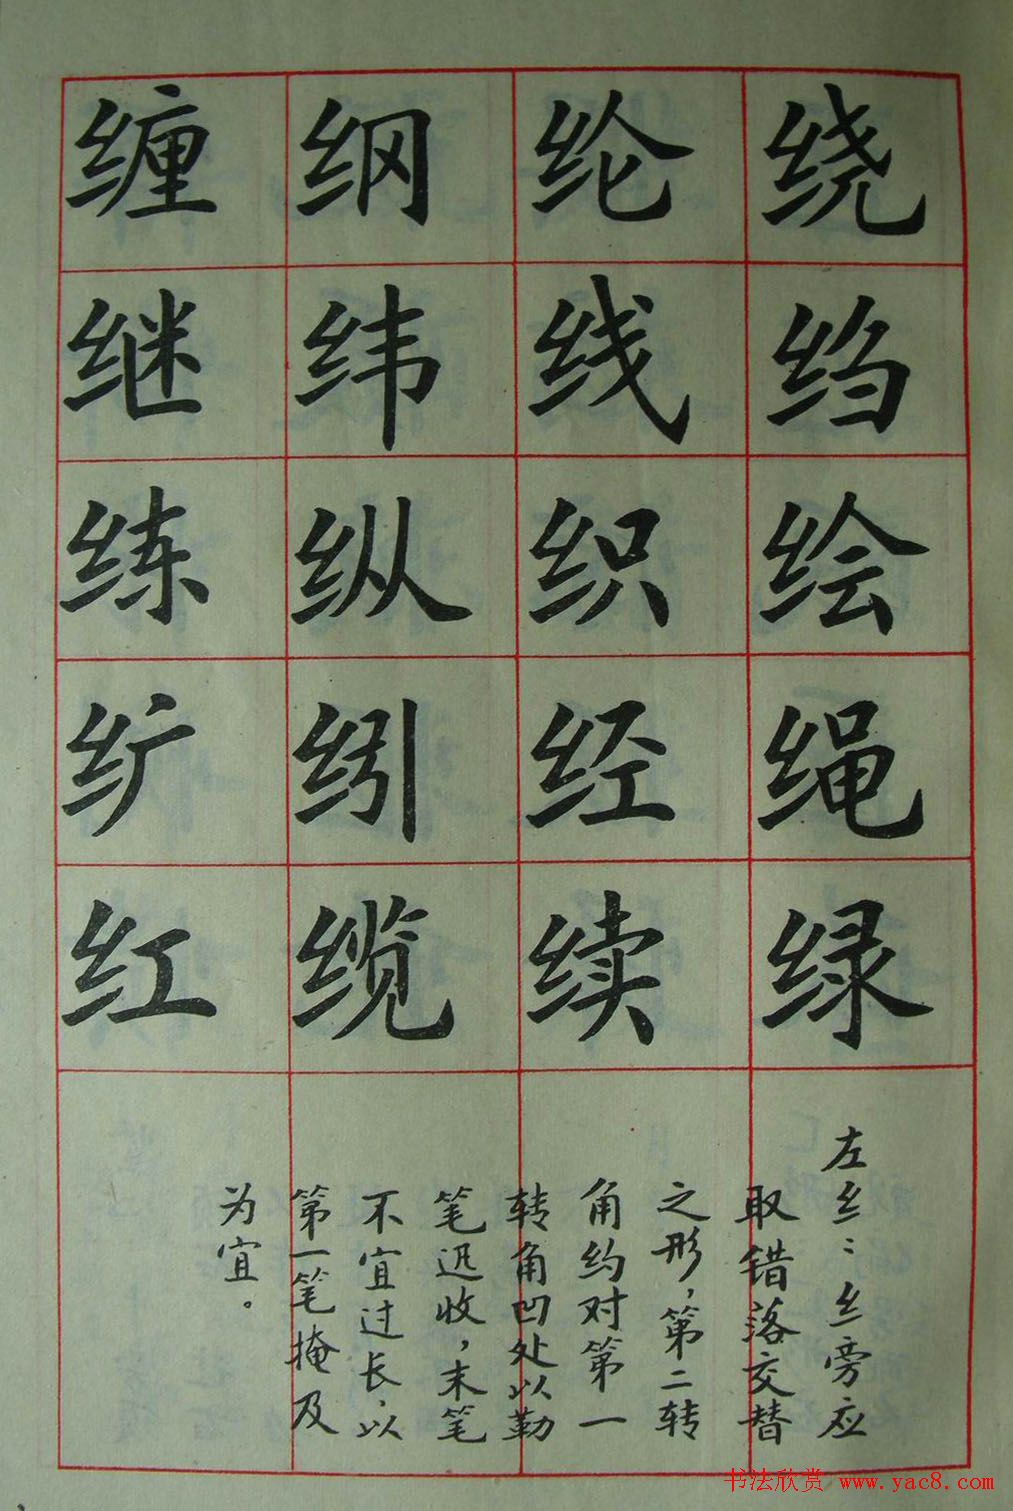 绕绉绘绳绿
纶线织经续
纲纬纵纼缆
缠继练纩红
左纟：纟旁应
取错落交替
之形，第二转
角约对第一
转角凹处以勒
笔迅收，末笔
不宜过长，以
第一笔掩及
为宜。
书法欣赏 www.yac8.com